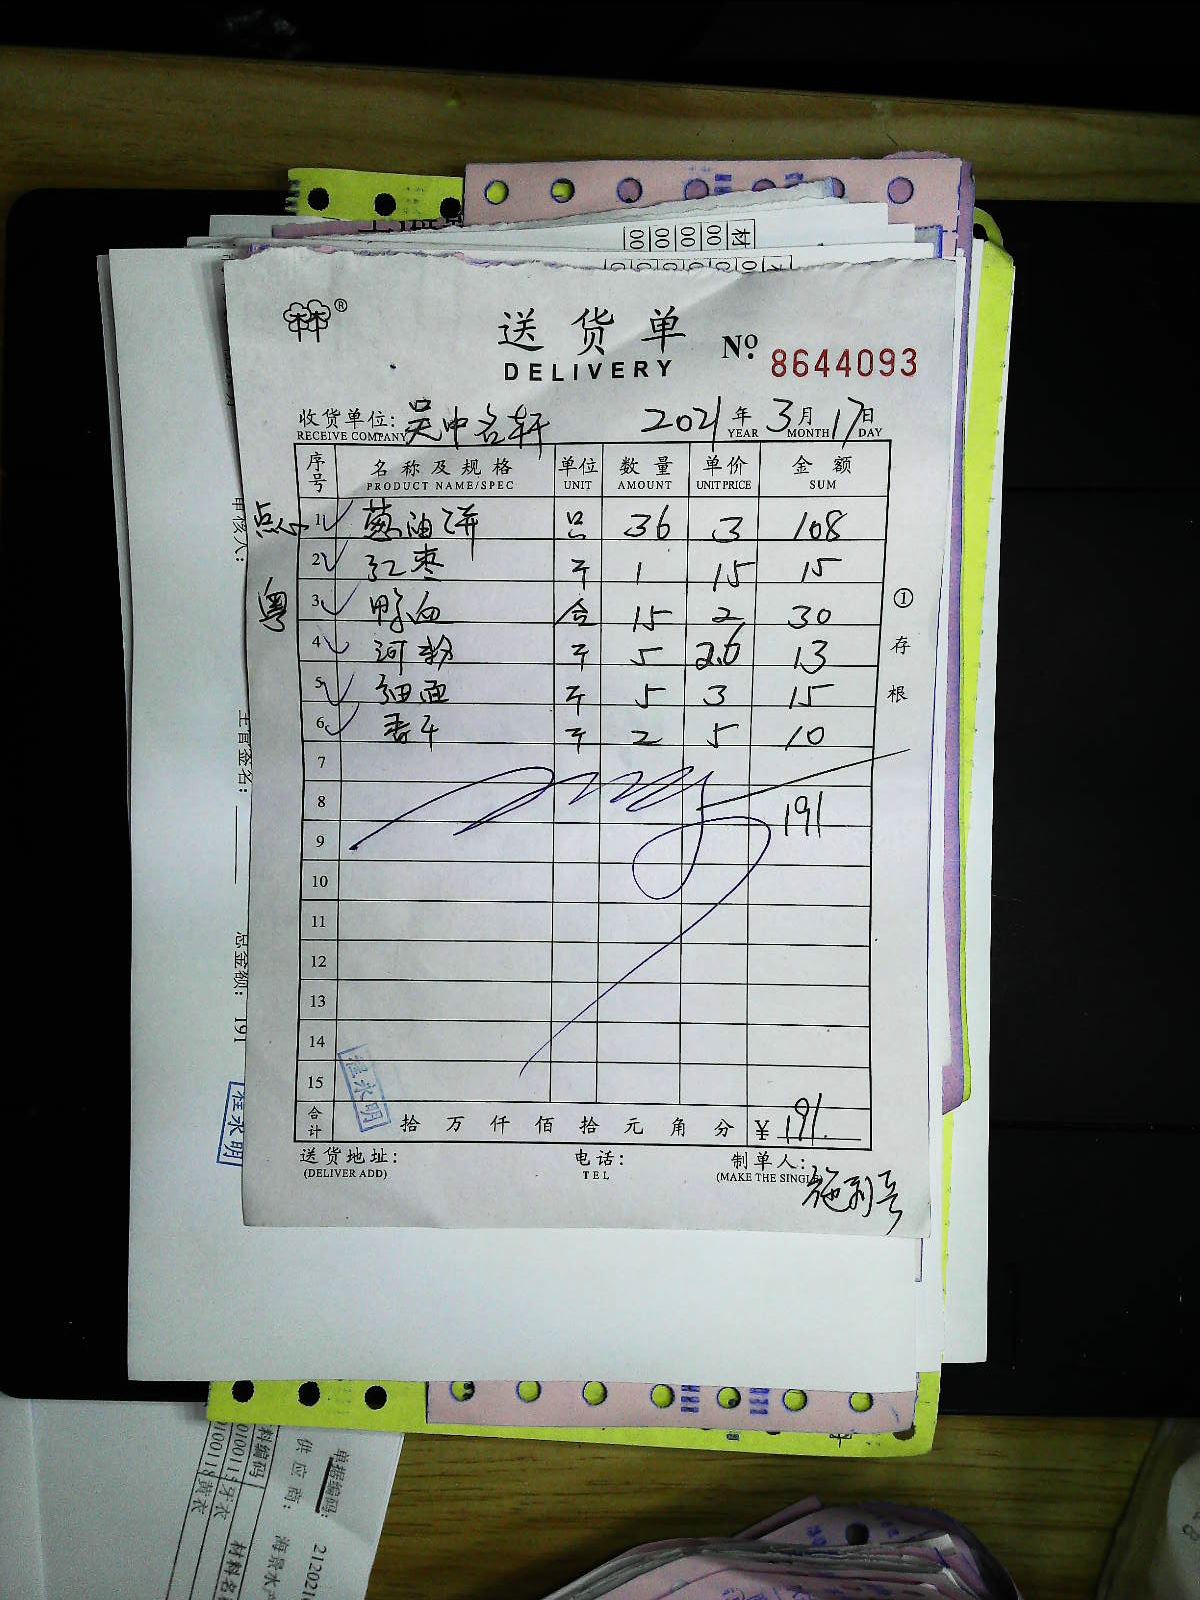 材
00
00
00
00
®
送货单
DELIVERY
Nº: 8644093
收货单位: 吴中名轩 2021年 3月 17日
RECEIVE COMPANY YEAR MONTH DAY
序号 名称及规格 单位 数量 单价 金额
PRODUCT NAME/SPEC UNIT AMOUNT UNIT PRICE SUM
点心 1 葱油饼 只 36 3 108
2 红枣 斤 1 15 15
粤 3 鸭血 合 15 2 30
4 河粉 斤 5 2.6 13
5 细面 斤 5 3 15
6 香干 斤 2 5 10
7
8 191
9
10
11
12
13
14
15
合计 拾 万 仟 佰 拾 元 角 分 ¥ 191.
程永明
送货地址: 电话: 制单人:
(DELIVER ADD) TEL (MAKE THE SINGLE)
① 存根
审核人:
主管签名:
总金额: 191
程永明
单据编码: 212021
供应商: 海泉水产
料编码 材料名
010011 牙衣
0100118 黄衣